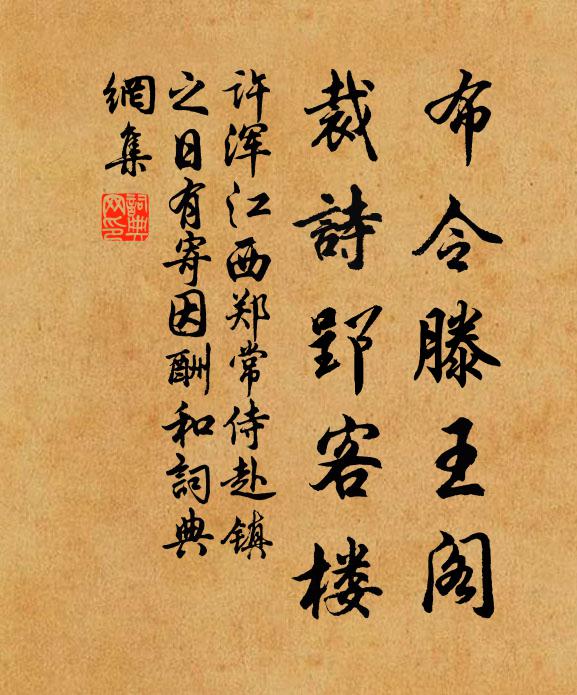 布令滕王阁
裁詩郢客楼
许浑江西郑常侍赴镇
之日有寄因酬和詞典
網集
詞典
网印